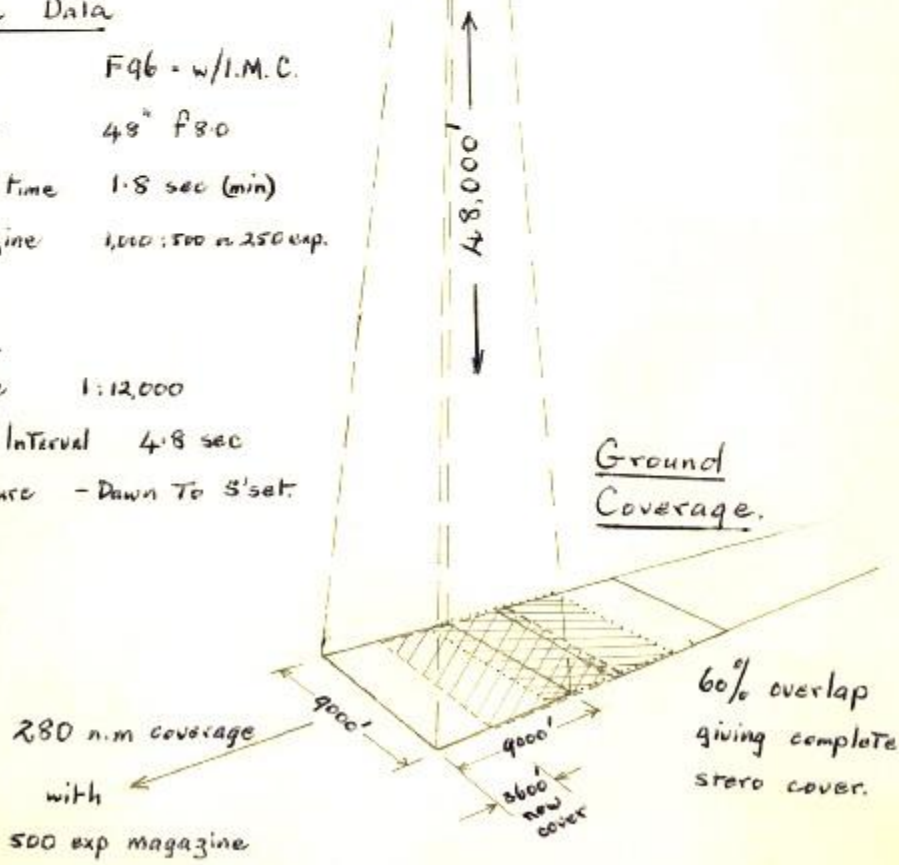 Data
F96 - w/I.M.C.
48" f8.0
time 1.8 sec (min)
1,000 : 500 or 250 exp.
1:12,000
Interval 4.8 sec
- Dawn To S'set.
48,000'
Ground
Coverage.
9000'
9000'
3600'
new
cover
60% overlap
giving complete
stero cover.
280 n.m coverage
with
500 exp magazine